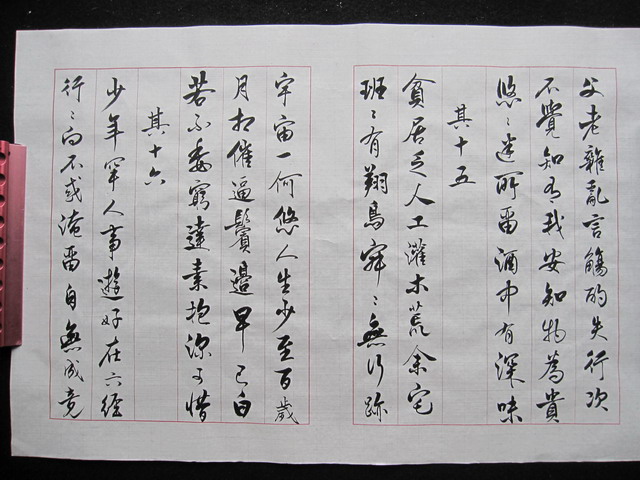 父老雜亂言觴酌失行次
不覺知有我安知物為貴
悠〻迷所留酒中有深味
其十五
貧居乏人工灌木荒余宅
班〻有翔鳥寂〻無行跡
宇宙一何悠人生少至百歲
月相催逼鬢邊早已白
若不委窮達素抱深可惜
其十六
少年罕人事遊好在六經
行〻向不惑淹留自無成竟